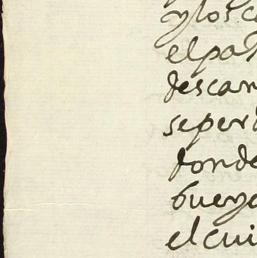 y los c
el pa
descan
se per
donde
bueya
el cui